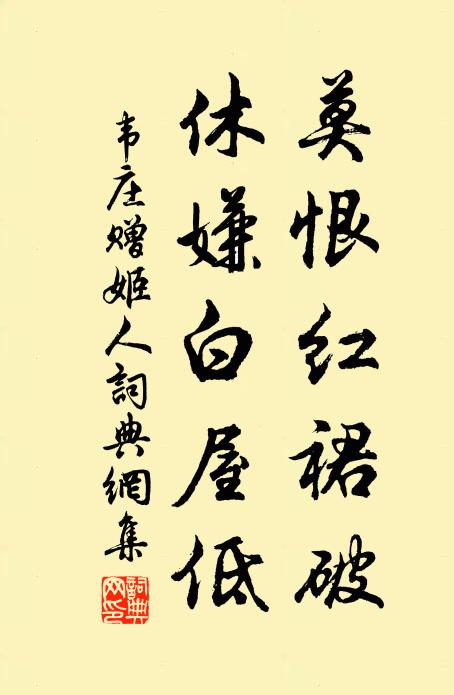 莫恨红裙破
休嫌白屋低
韦庄赠姬人詞典網集
詞典
网印